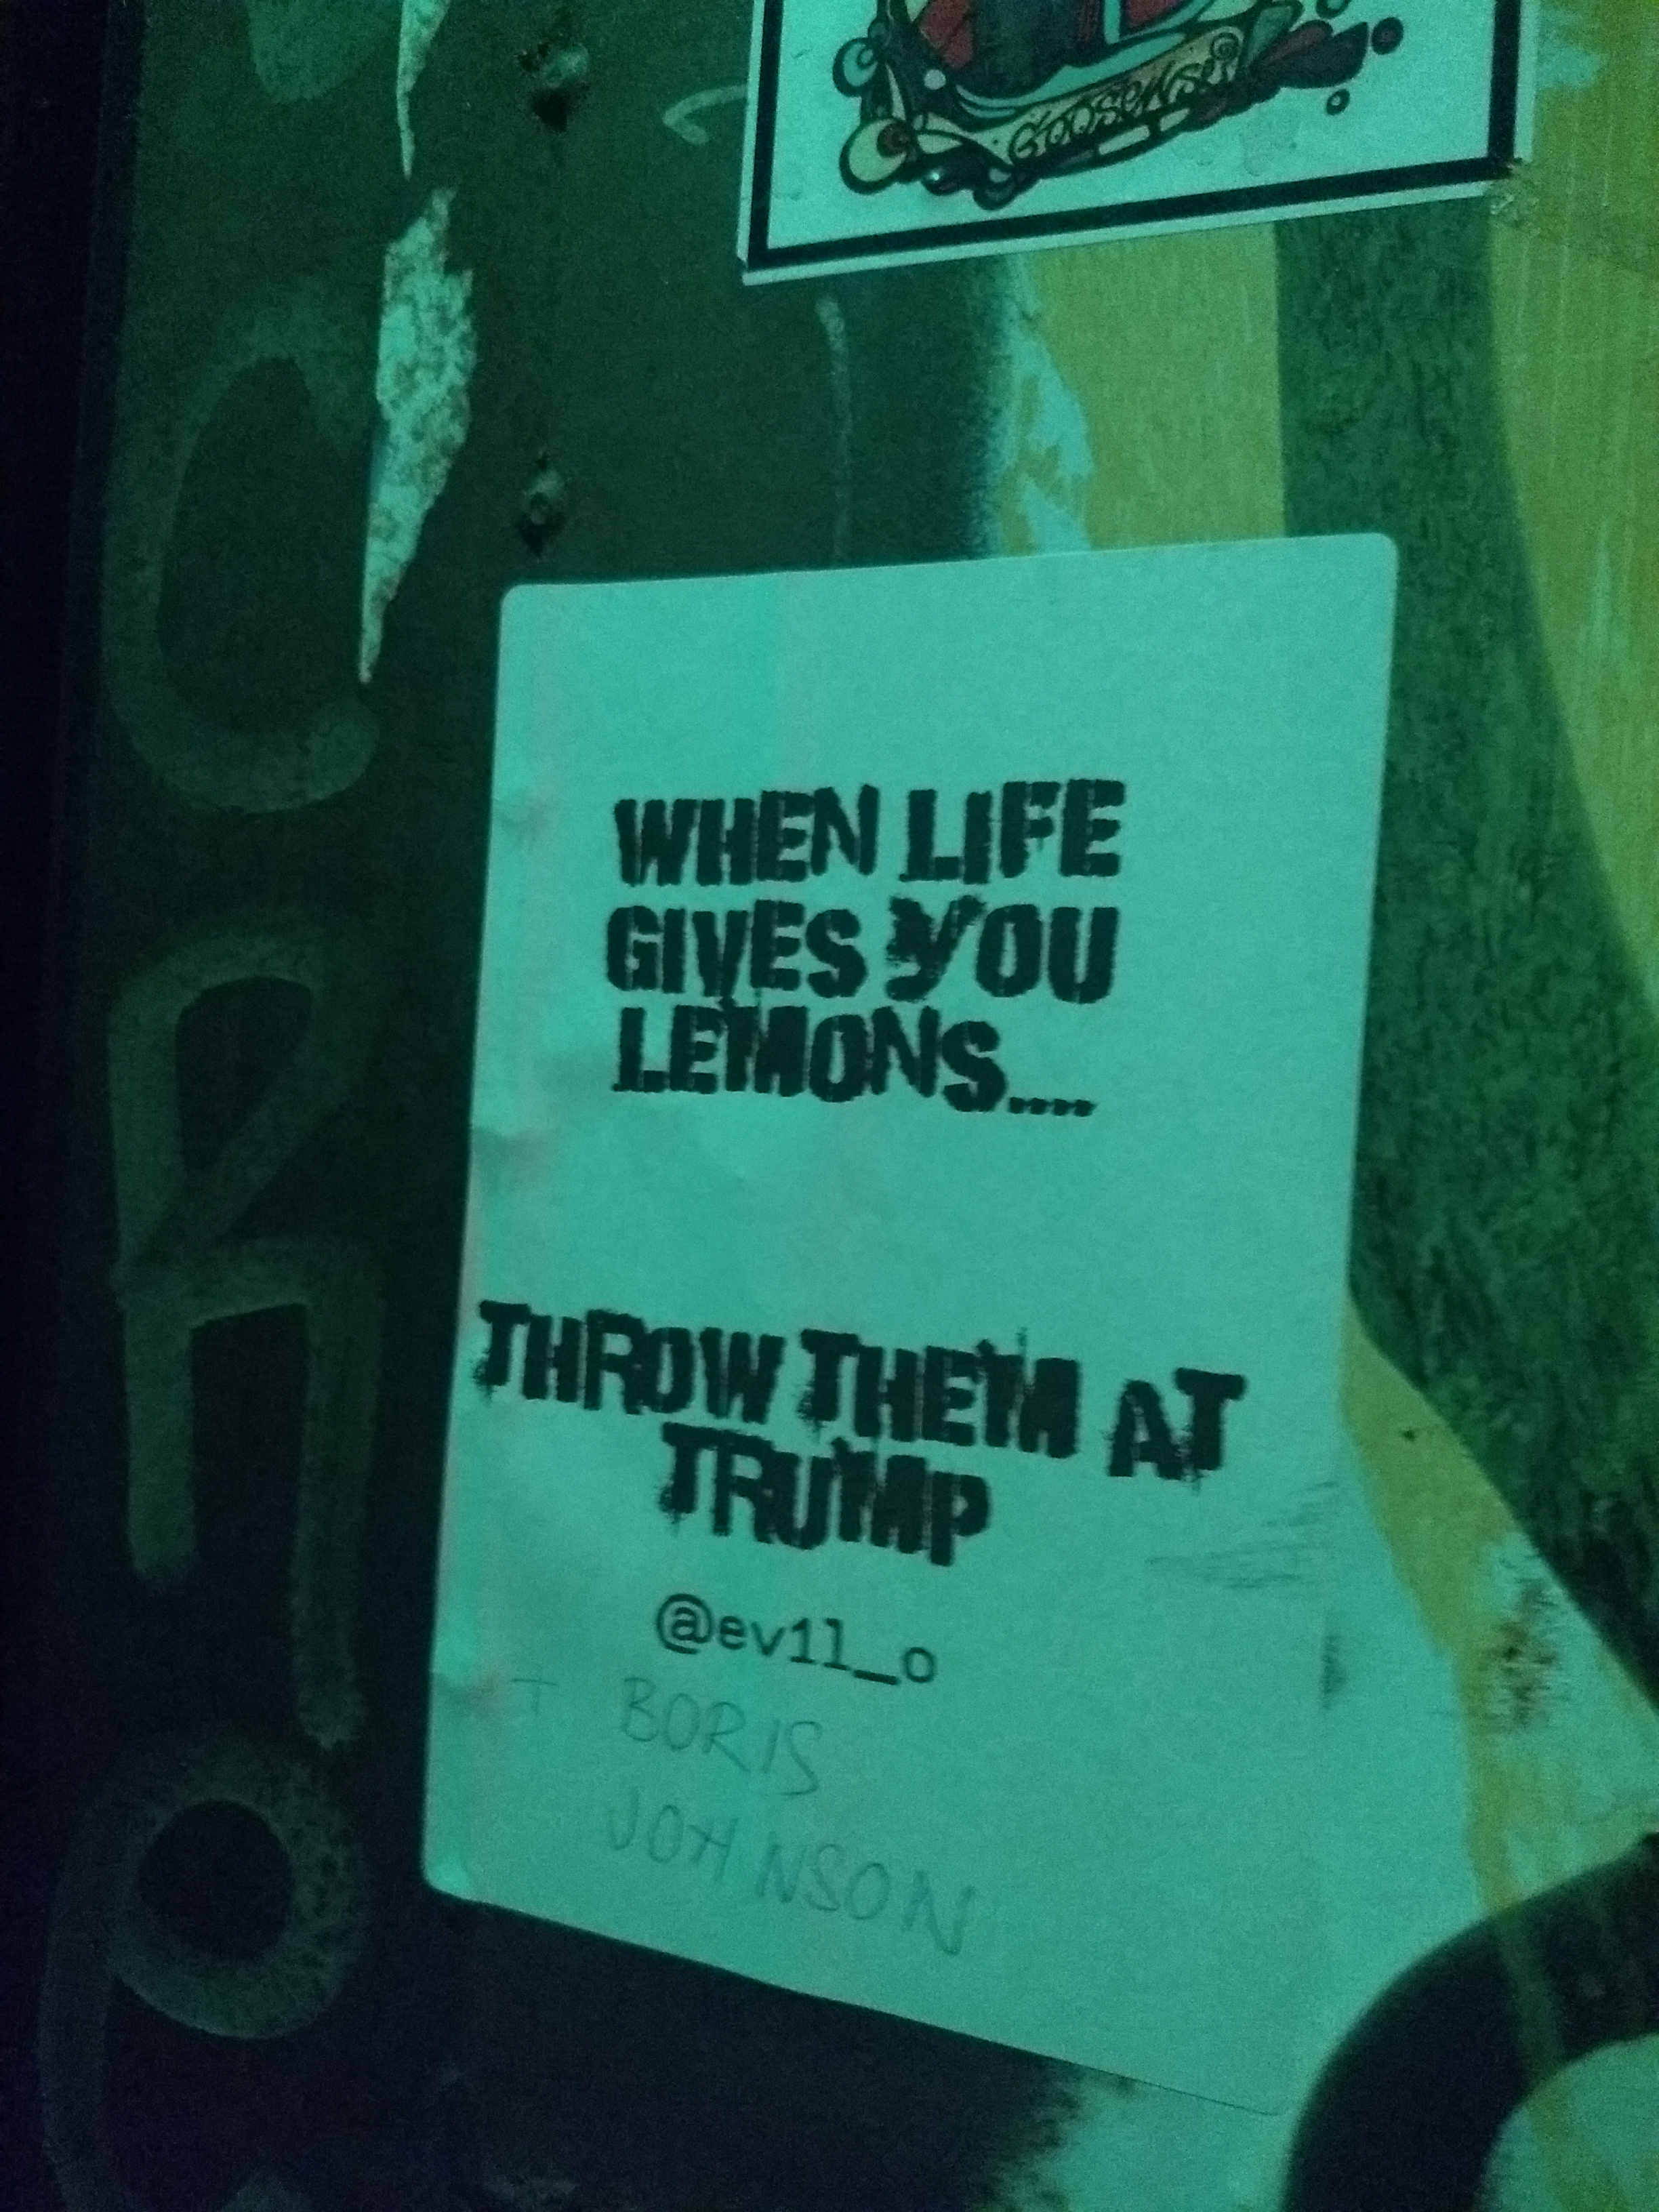 GOOSENSEI
WHEN LIFE
GIVES YOU
LEMONS....
THROW THEM AT
TRUMP
@ev1l_o
+ BORIS
JOHNSON